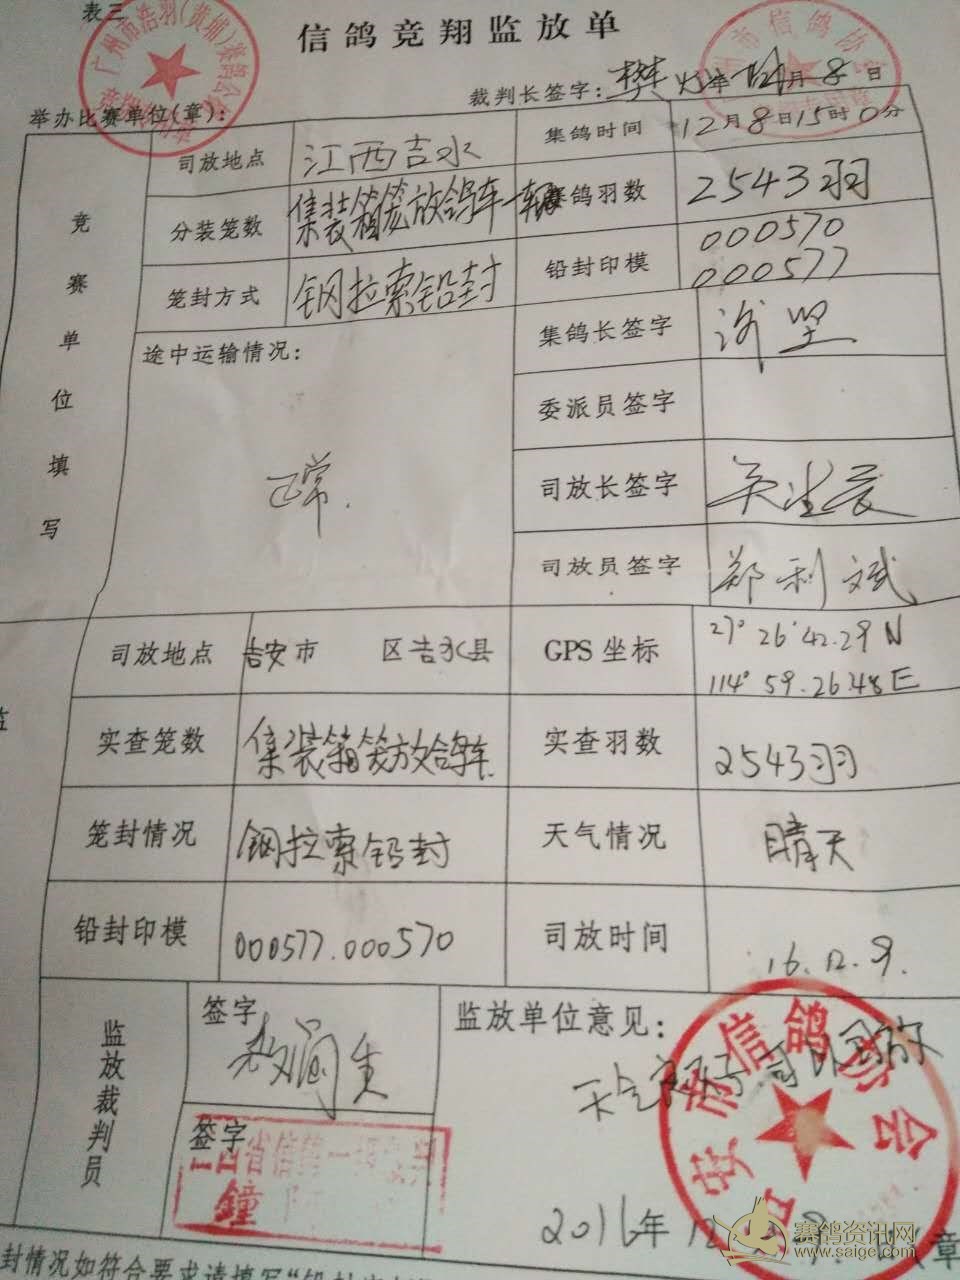 表三
信鸽竞翔监放单
裁判长签字:樊 年 月 8 日
举办比赛单位(章):
广州市浩羽(黄埔)赛鸽公棚
市信鸽协会
竞赛单位填写
司放地点 江西吉水 集鸽时间 12月8日15时0分
分装笼数 集装箱笼放鸽车一辆 赛鸽羽数 2543羽
笼封方式 钢拉索铅封 铅封印模 000570
000577
途中运输情况: 集鸽长签字 坚
正常. 委派员签字
司放长签字
司放员签字 郑利斌
司放地点 吉安市 区吉水县 GPS坐标 27° 26′42.29 N
114° 59.26.48 E
实查笼数 集装箱笼放鸽车 实查羽数 2543羽
笼封情况 钢拉索铅封 天气情况 晴天
铅封印模 000577.000570 司放时间 16.12.9.
监放裁判员
签字
签字
鐘
监放单位意见:
天气良好 可以司放
吉安市信鸽协会
2016年 12 9 日 (章
封情况如符合要求请填写“铅封
赛鸽资讯网
www.saige.com